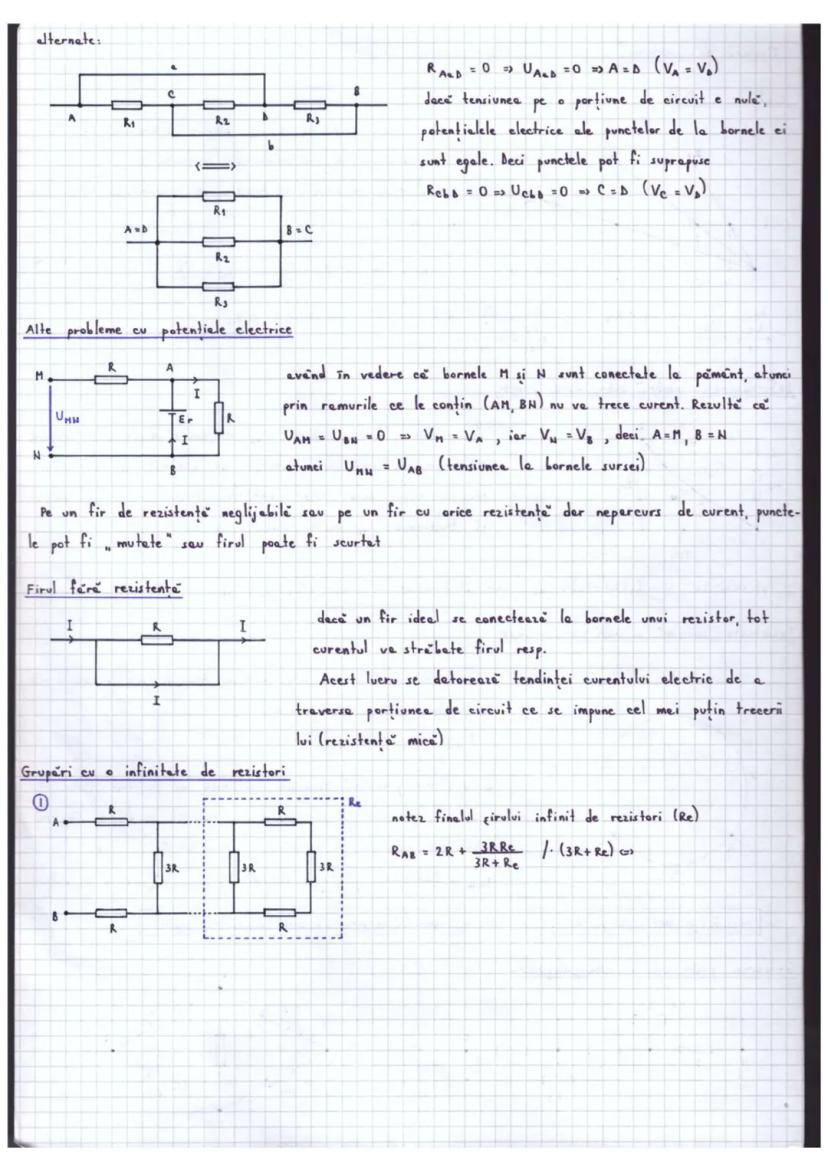 alternate:
a
A R1 C R2 D R3 B
b
<=>
R1
A=D B=C
R2
R3
R A a D = 0 => U A a D = 0 => A = D (V A = V D)
dacă tensiunea pe o porțiune de circuit e nulă,
potențialele electrice ale punctelor de la bornele ei
sunt egale. Deci punctele pot fi suprapuse
R C b D = 0 => U C b D = 0 => C = D (V C = V D)
Alte probleme cu potențiale electrice
M R A
I
U MN E r R
I
N B
având în vedere că bornele M și N sunt conectate la pământ, atunci
prin ramurile ce le conțin (AM, BN) nu va trece curent. Rezultă că
U AM = U BN = 0 => V M = V A , iar V N = V B , deci A=M, B=N
atunci U MN = U AB (tensiunea la bornele sursei)
Pe un fir de rezistență neglijabilă sau pe un fir cu orice rezistență dar neparcurs de curent, puncte-
le pot fi „mutate" sau firul poate fi scurtat
Firul fără rezistență
I R I
I
dacă un fir ideal se conectează la bornele unui rezistor, tot
curentul va străbate firul resp.
Acest lucru se datorează tendinței curentului electric de a
traversa porțiunea de circuit ce se impune cel mai puțin trecerii
lui (rezistență mică)
Grupări cu o infinitate de rezistori
① R R Re
A
3R 3R 3R
B
R R
notez finalul șirului infinit de rezistori (Re)
R AB = 2R + 3RRe / 3R + Re /· (3R+Re) <=>